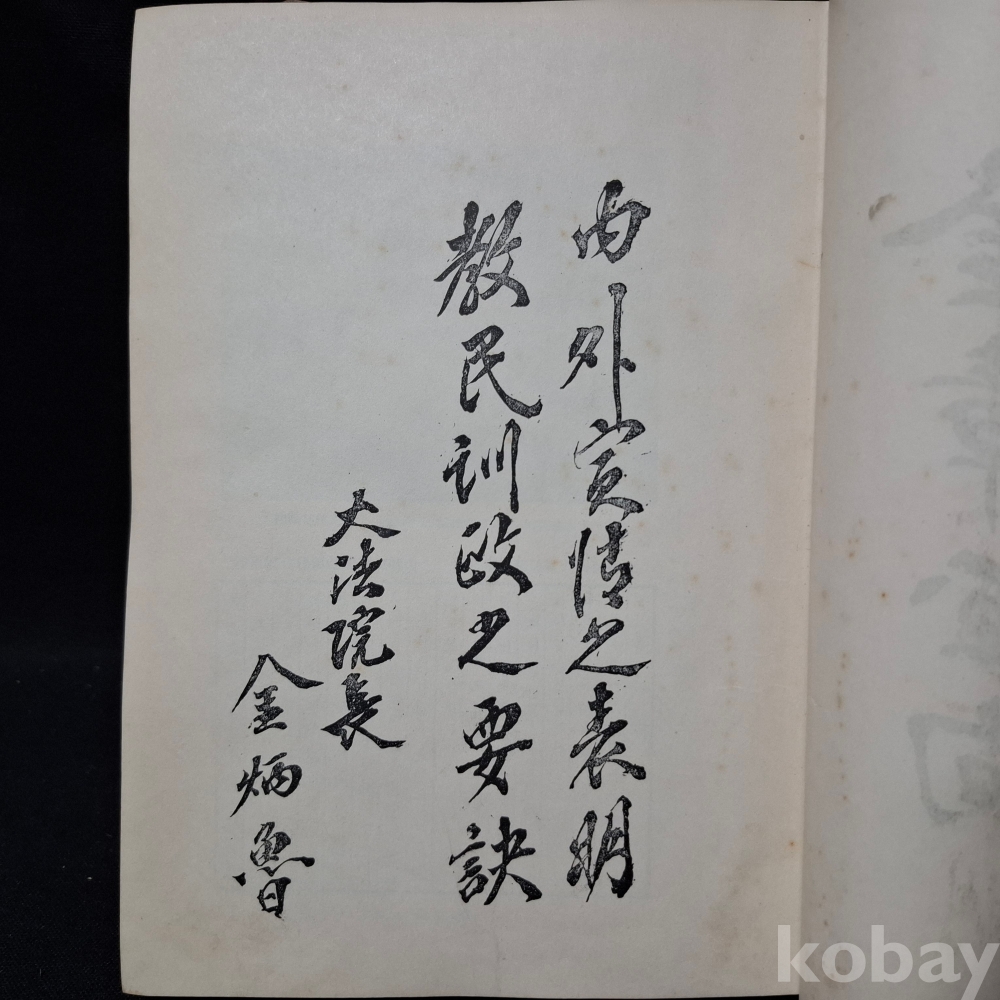 內外實情之表明
敎民訓政之要訣
大法院長
金炳魯
kobay